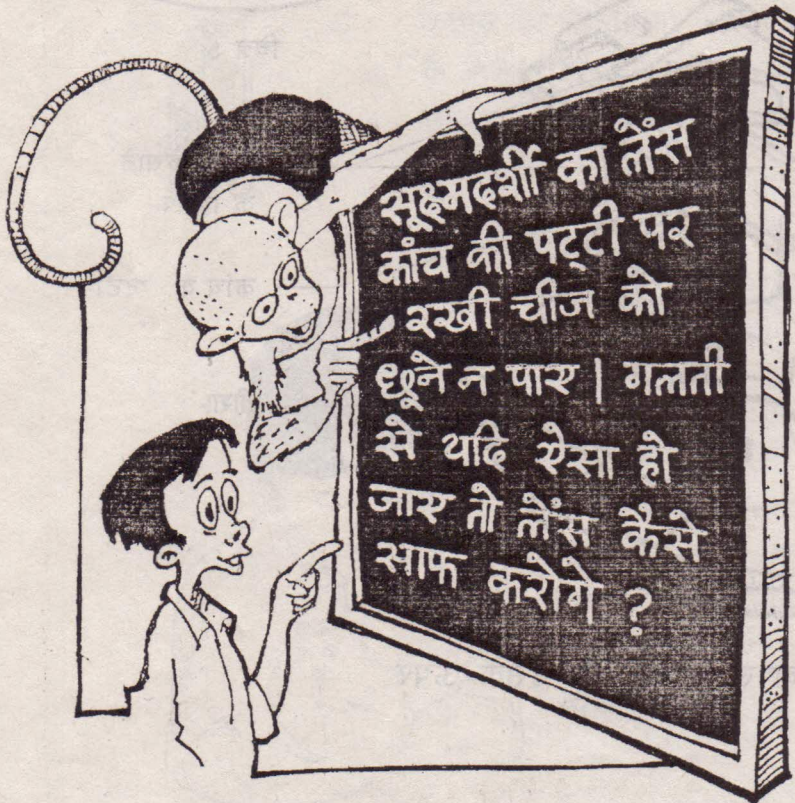 सूक्ष्मदर्शी का लेंस
कांच की पट्टी पर
रखी चीज को
छूने न पाए | गलती
से यदि ऐसा हो
जाए तो लेंस कैसे
साफ करोगे ?